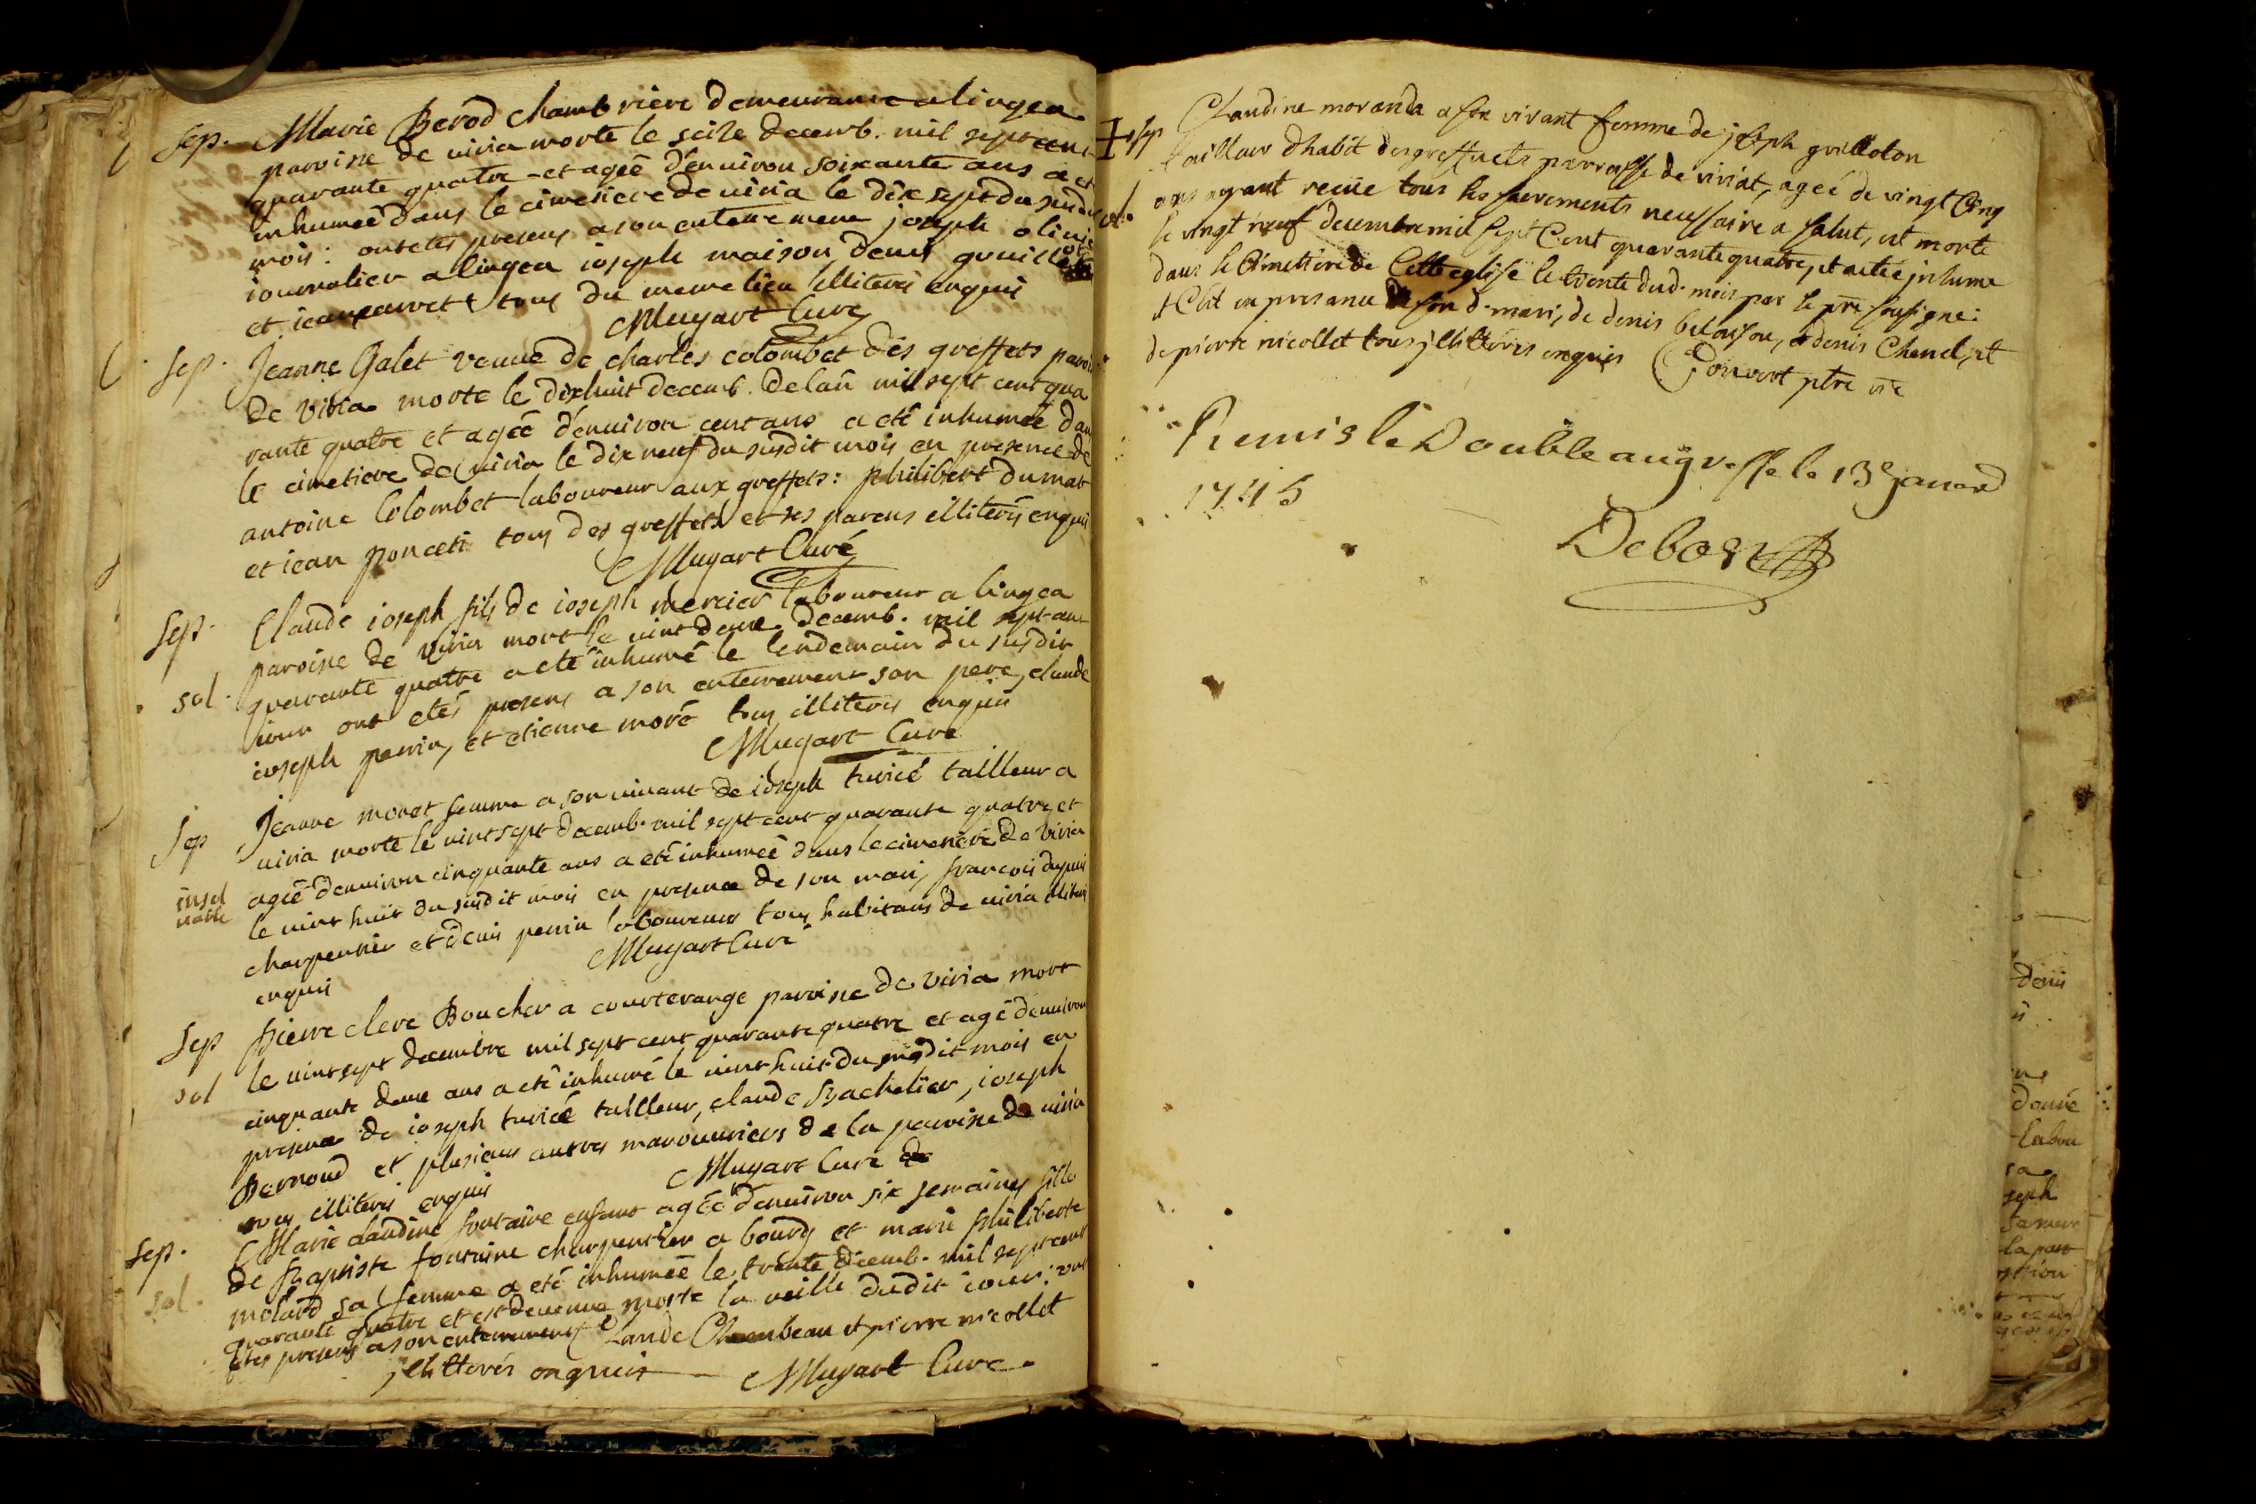 sep. Marie Berod chambriere demeurante a lingea
paroisse de viria morte le seize decemb. mil sept cent
quarante quatre et agée d'enuiron soixante ans a eté
inhumeé dans le cimetiere de viria le dix sept du susdit
mois: ont etés presens a son enterrement joseph
journalier a lingea ioseph maison, denis
et jean tous du meme lieu illiterés enquis
Mugart Curé
sep. Jeanne Galet veuue de charles colombet des greffets paroi
de viria morte le dixhuit decemb. de lan mil sept cent qua
rante quatre et agée d'enuiron cent ans a eté inhumeé dan
le cimetiere de viria le dix neuf du susdit mois en presence de
antoine Colombet laboureur aux greffets: philibert dumat
et jean poncet tous des greffets et ses parens illiterés enquis
Mugart Curé
sep. Claude ioseph fils de ioseph mercier laboureur a lingea
paroisse de viria mort le uint deux decemb. mil sept cent
sol. quarante quatre a eté inhumé le lendemain du susdit
iour ont etés presens a son enterrement son pere, claude
ioseph perrin, et etienne moré tous illiterés enquis
Mugart Curé
sep Jeanne moret femme a son uiuant de ioseph turicé tailleur a
uiria morte le uint sept decemb. mil sept cent quarante quatre et
insol agée denuiron cinquante ans a eté inhumeé dans le cimetiere de viria
uable le uint huit du susdit mois en presence de son mari, francois dupuis
charpentier et denis perrin laboureurs tous habitans de uiria illiterés
enquis Mugart Curé
sep pierre clere Boucher a courterange paroisse de viria mort
sol le uint sept decembre mil sept cent quarante quatre et agé denuiron
cinquante deux ans a eté inhumé le uint huit du susdit mois en
presence de ioseph turicé tailleur, claude Bachelier, ioseph
Bernoud et plusieurs autres manouuriers de la paroisse de uiria
tous illiterés enquis Mugart Curé
sep. Marie claudine fontaine enfant agée denuiron six semaines fille
de Baptiste fontaine charpentier a bourg et marie philiberte
sol. molard sa femme a eté inhumeé le trente decemb. mil sept cent
quarante quatre et est deuenue morte la ueille dudit iour: ont
etes presens a son enterrement Claude Chambeau et pierre nicollet
jllitterés enquis Mugart Curé.
sep Claudine moranda a son vivant femme de joseph guilloton
tailleur d'habit des greffuets parroisse de viriat, ageé de vingt Cinq
sol. ans ayant reçüe tous les sacrements necessaire a salut, est morte
le vingt neuf decembre mil sept Cent quarante quatre, et a etée jnhumé
dans le Cimettiere de Cette eglise le trente dud. mois par le pre sousigné:
et C'est en presance de son d. mari, de denis beloison, de denis Chanel, et
de pierre nicollet tous jllitterés enquis Convert ptre vic
Remis le Double au greffe le 13e janvier
1745
Debost